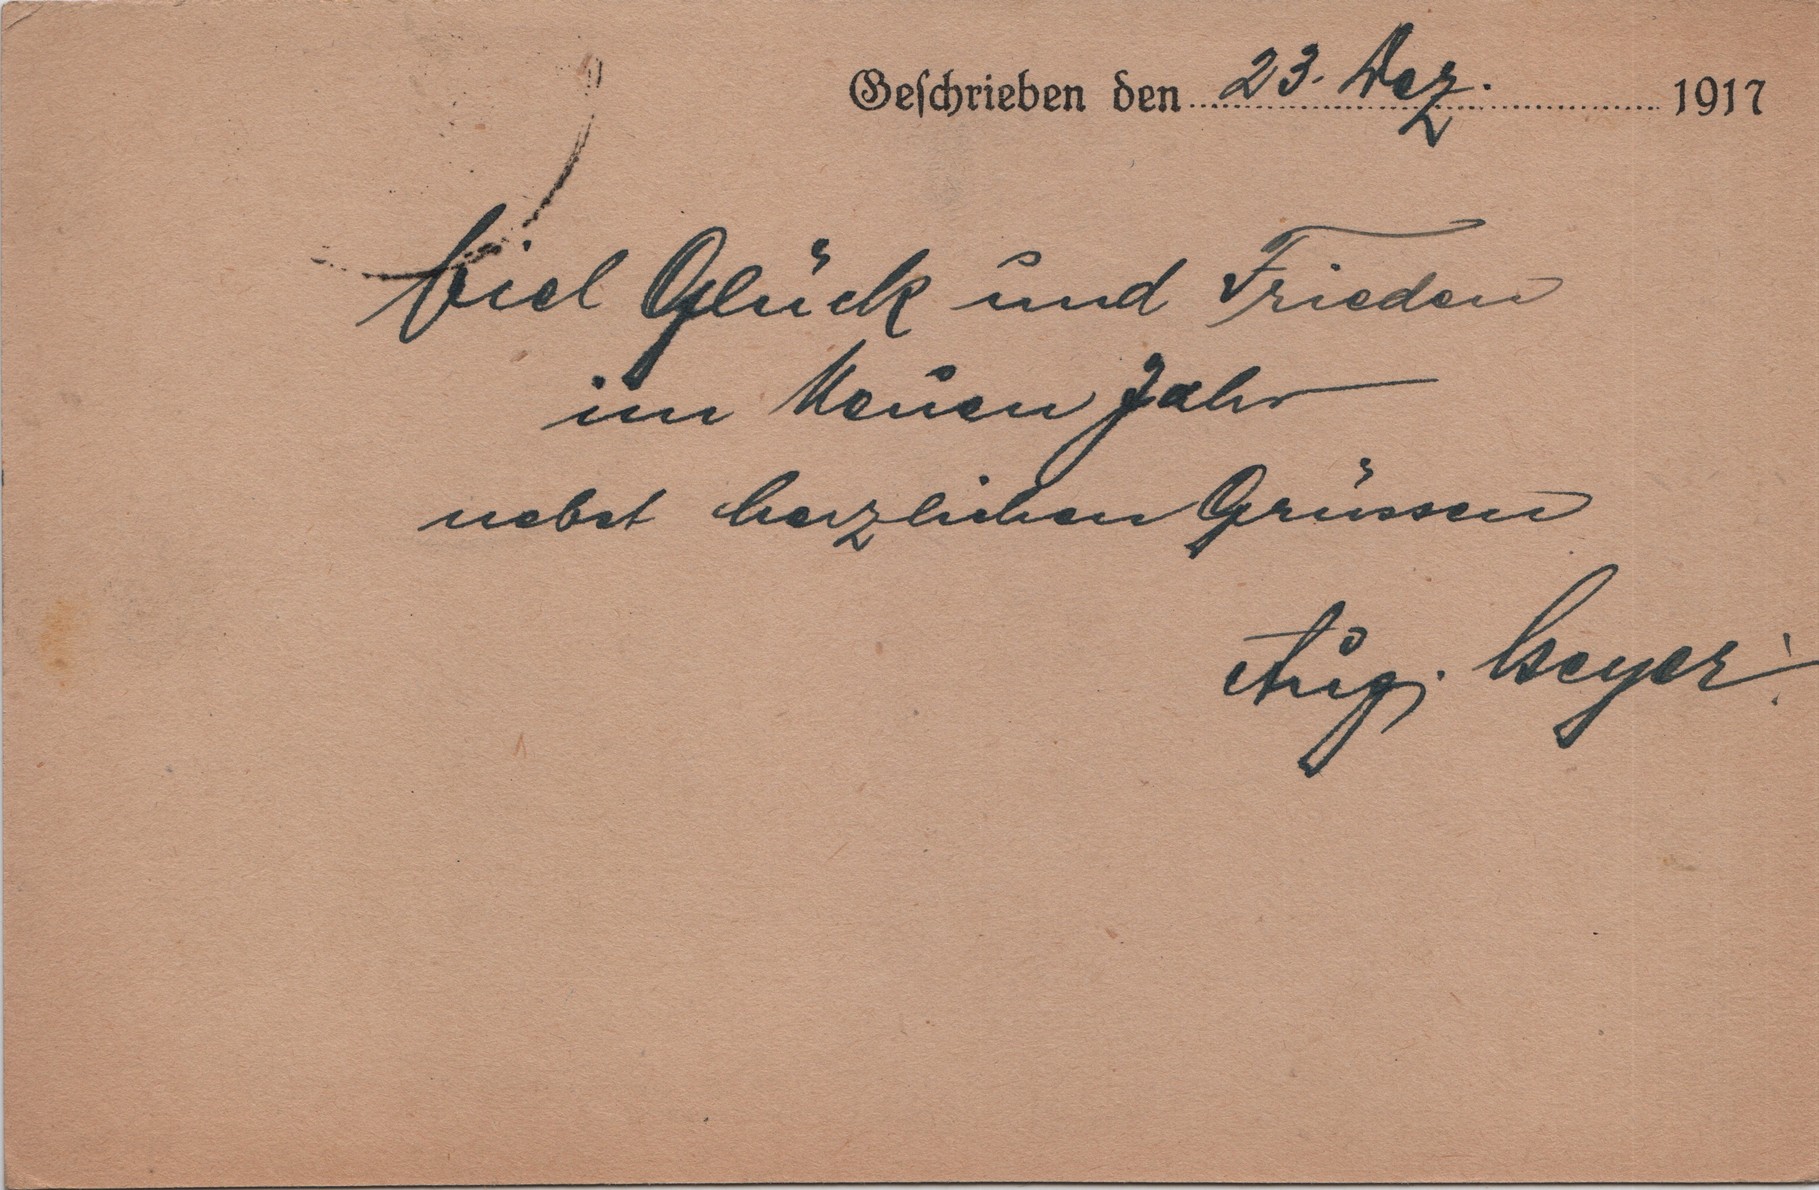 Geschrieben den 23. Dez. 1917
Viel Glück und Frieden
im Neuen Jahr
nebst herzlichen Grüssen
Aug.